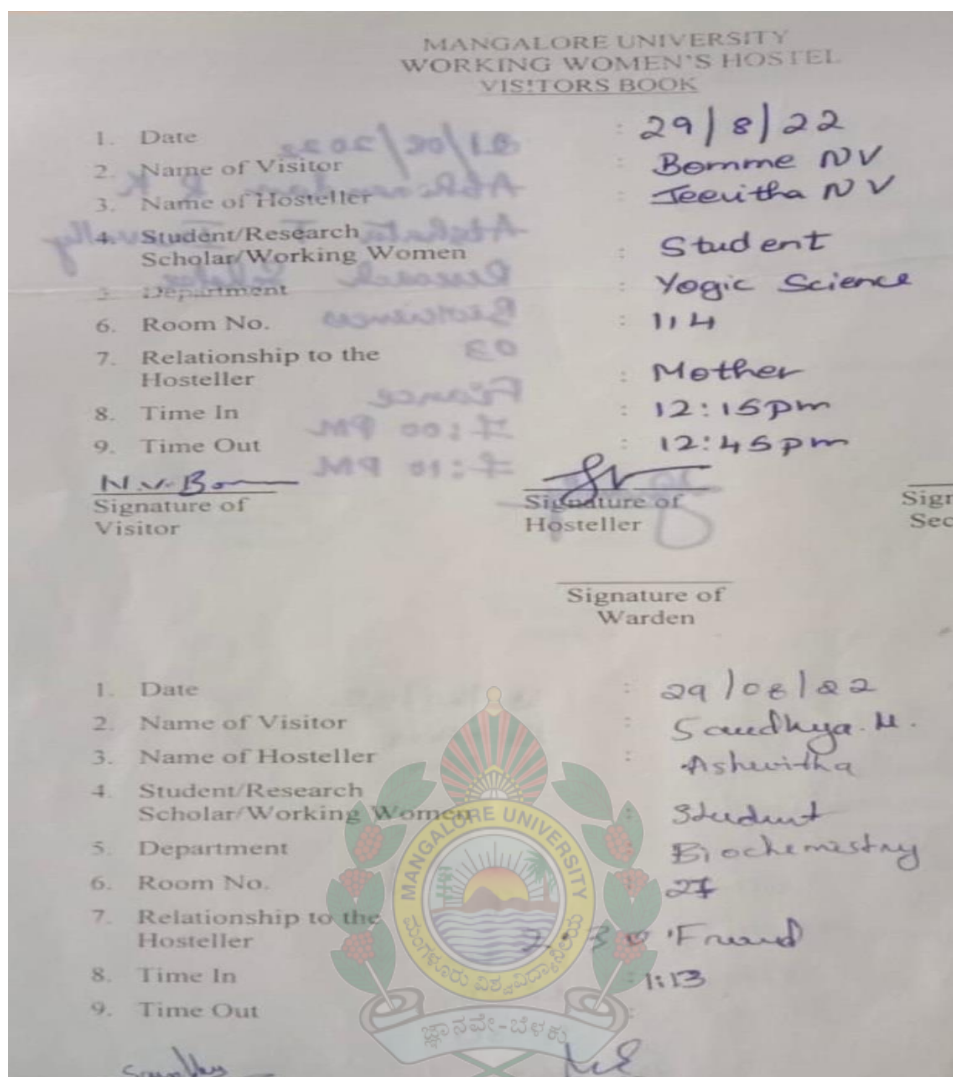 MANGALORE UNIVERSITY
WORKING WOMEN'S HOSTEL
VISITORS BOOK
1. Date : 29/8/22
2. Name of Visitor : Bomme NV
3. Name of Hosteller : Jeevitha NV
4. Student/Research
Scholar/Working Women : Student
5. Department : Yogic Science
6. Room No. : 114
7. Relationship to the
Hosteller : Mother
8. Time In : 12:15pm
9. Time Out : 12:45pm
Signature of
Visitor
Signature of
Hosteller
Signature of
Warden
1. Date : 29/08/22
2. Name of Visitor : Sandhya. M.
3. Name of Hosteller : Ashwitha
4. Student/Research
Scholar/Working Women : Student
5. Department : Biochemistry
6. Room No. : 27
7. Relationship to the
Hosteller : Friend
8. Time In : 1:13
9. Time Out :
MANGALORE UNIVERSITY
ಮಂಗಳೂರು ವಿಶ್ವವಿದ್ಯಾನಿಲಯ
ಜ್ಞಾನವೇ-ಬೆಳಕು